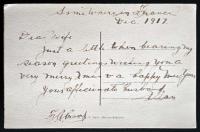 Somewhere in France
Dec 1917
Dear Wife
Just a little token bearing my
season greetings wishing you a
very merry Xmas & a happy New Year
Your affectionate husband,